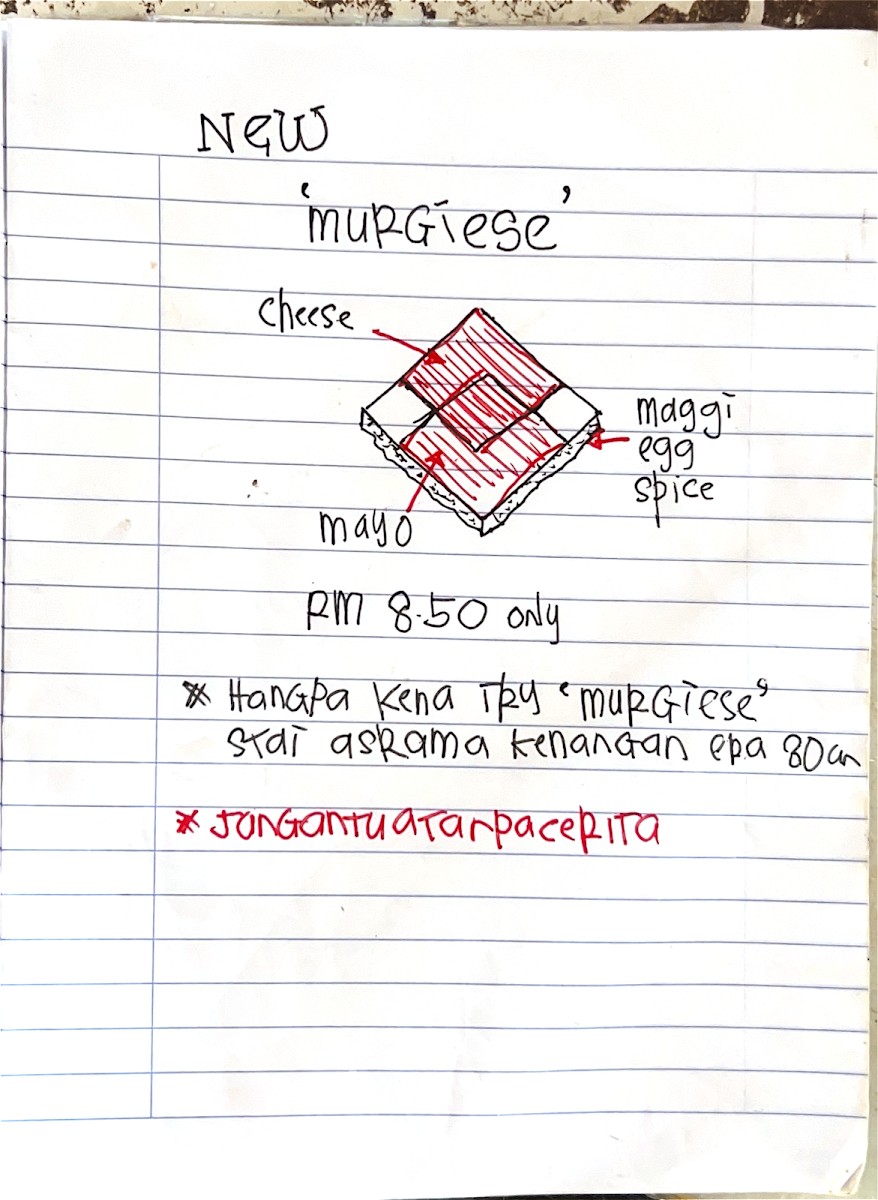 NEW
'MURGiese'
cheese
maggi
egg
spice
mayo
RM 8.50 only
* Hangpa kena TRy 'MURGiese'
stai asrama kenangan era 80an
* JONGANTUATARPACERITA